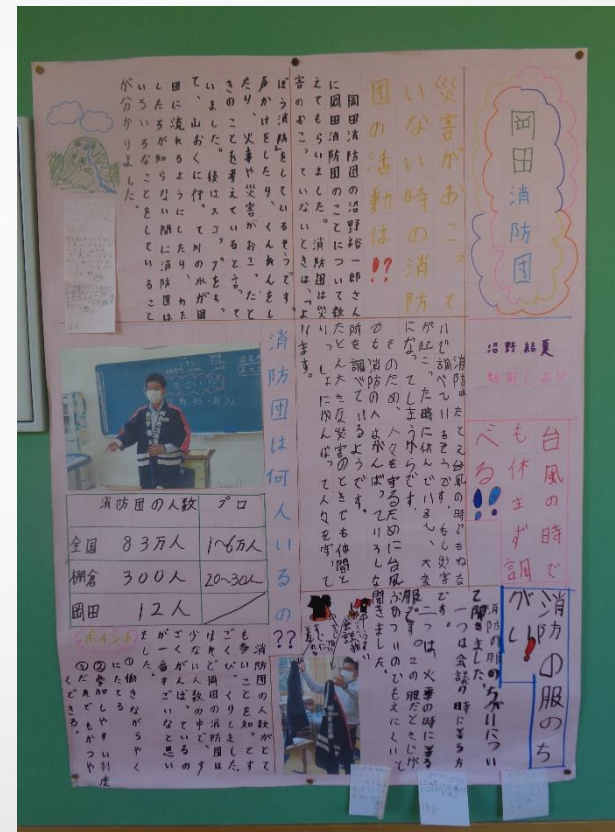 岡田
消防団
沼野結夏
台風の時で
も休まず調
べる!!
災害がおこって
いない時の消防
団の活動は!?
岡田消防団の沼野裕一郎さん
に岡田消防団のことについて教
えてもらいました。消防団は災
害のおこっていないときは、「よ
ぼう消防」をしているそうです
声かけをしたり、くんれんをし
たり、火事や災害がおこったと
きのことを考えていると言って
いました。後はスコップをも
て、山おくに行って川の水が田
田に流れるようにしたり、わた
したちが知らない間に消防団は
いろいろなことをしていること
が分かりました。
消防はたとえ台風の時でもねな
いで調べているそうです。もし災害
が起こった時に休んでいると、大変
になってしまうからです。
そのため、人々を守るために台風
でも消防の人はがんばっていろんな
所を調べているようです。
たとえ大きな災害のときでも仲間と
いっしょにがんばって人々を守って
います。
消防団は何人いるの??
消防団の人数
プロ
全国 83万人 1~6万人
棚倉 300人 20~30人
岡田 12人
消防団の人数がとて
も多いことを知ってす
ごくびっくりしました。
ほかに岡田の消防団は
少ない人数の中で、す
ごくがんばっているの
が一番すごいなと思い
ました。
ポイント
①働きながらやく
にたてる
②参加しやすい制度
③だれでもかつや
くできる。
消防の服のち
がい!
消防の服のちがいについ
て聞きました。
一つは会議の時に着る方
です。
二つは、火事の時に着る
服です。この服だときじが
ぶあついのでもえにくいと
聞きました。